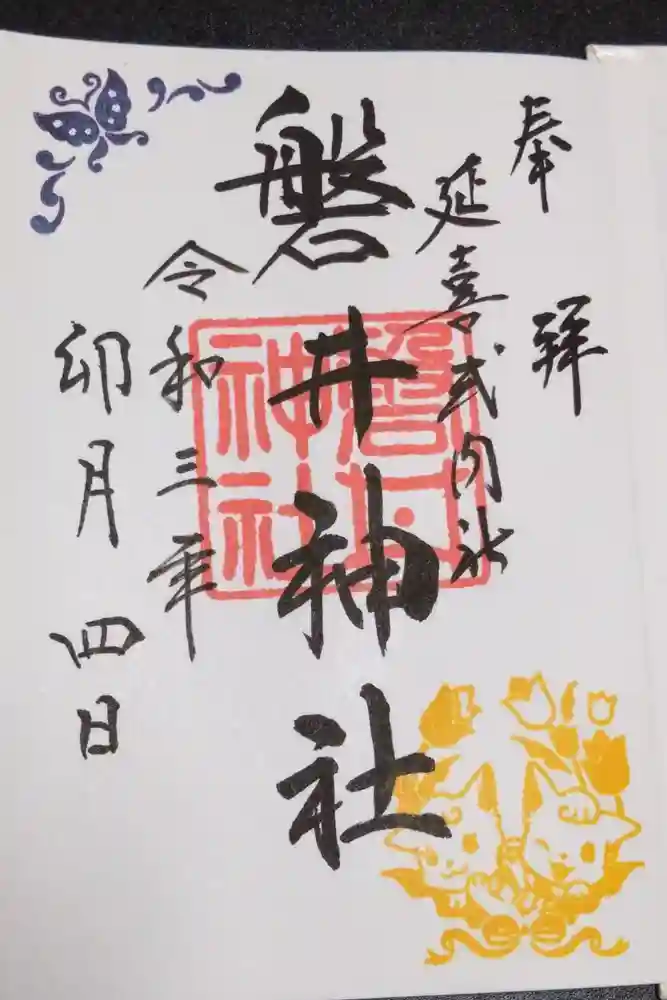 奉拝
延喜式内社
磐井神社
磐井
神社
令和三年
卯月四日